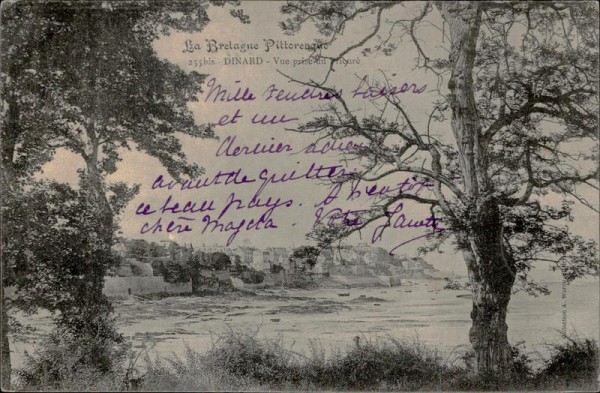 La Bretagne Pittoresque
255bis. DINARD - Vue prise du Prieuré
Mille tendres baisers
et un
dernier adieu
avant de quitter
ce beau pays. A bientôt
chère Magda.